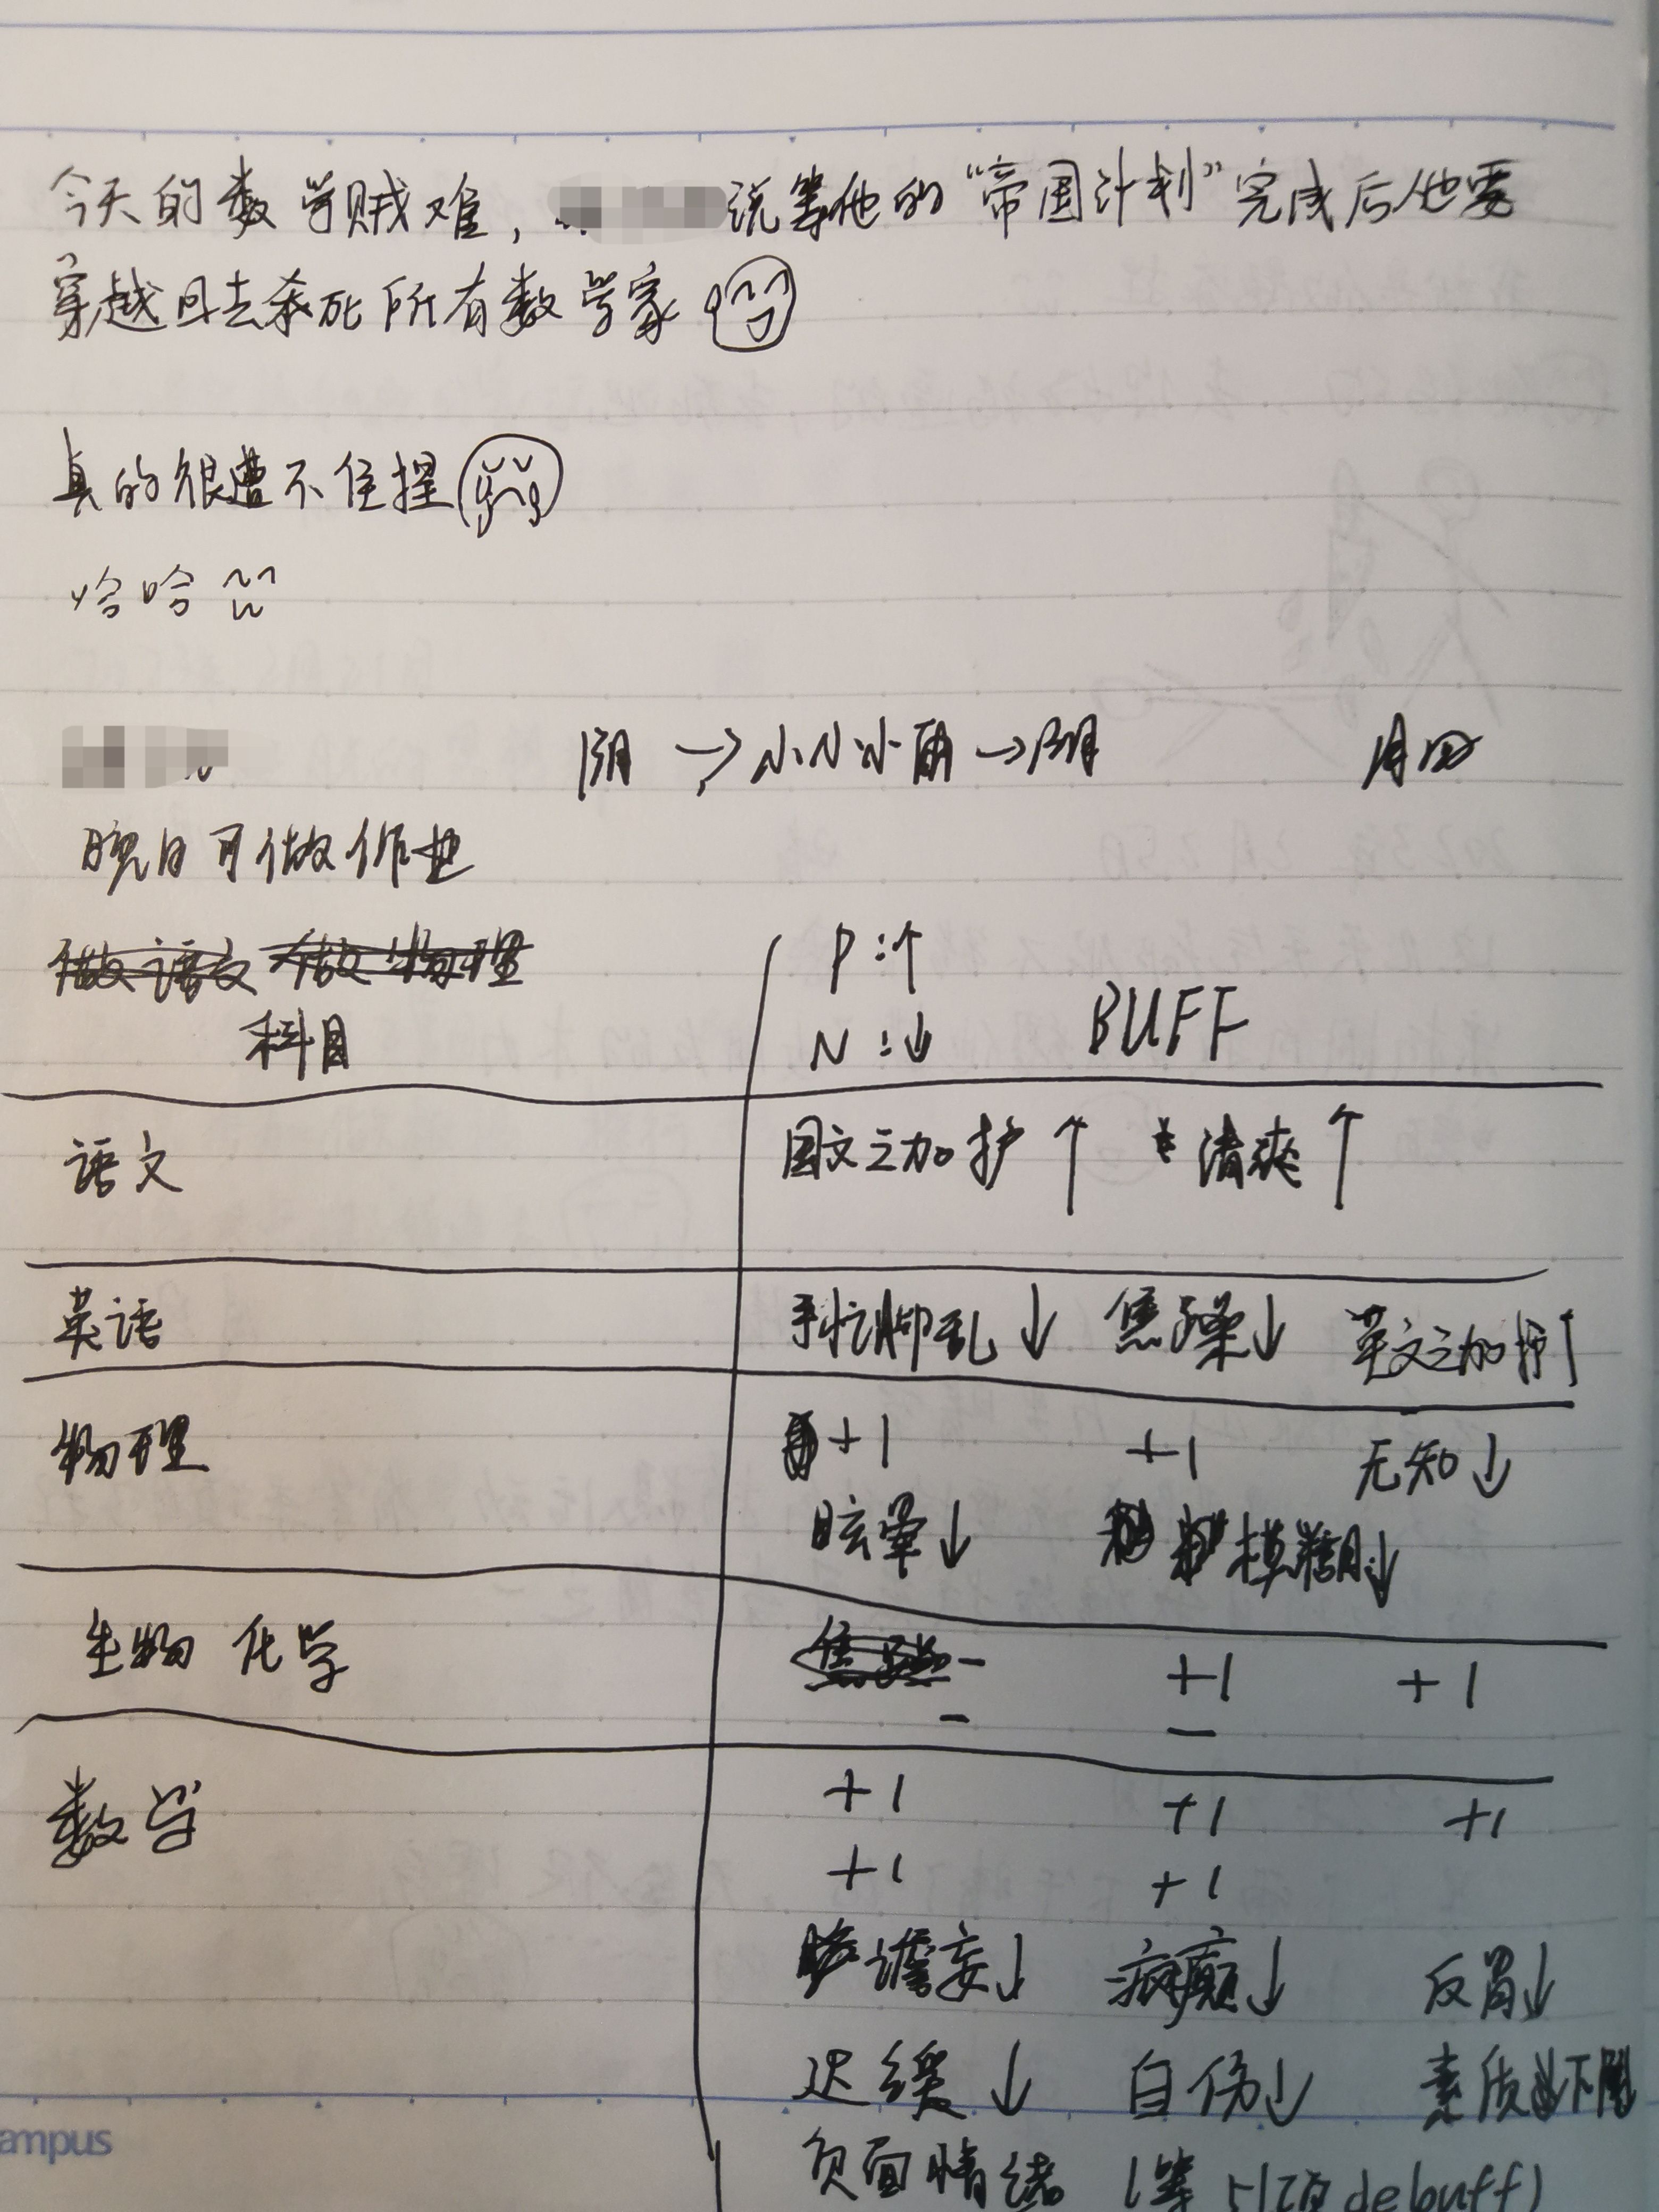 今天的数学贼难，说等他的“帝国计划”完成后他要
穿越回去杀死所有数学家
真的很遭不住捏
哈哈
阴→小小小雨→阴 周四
晚自可做作业
做语文 做物理
科目
P:↑
N:↓ BUFF
语文 国文之加护↑ 清爽↑
英语 手忙脚乱↓ 焦躁↓ 英文之加护↑
物理 +1 +1 无知↓
眩晕↓ 模糊↓
生物 化学 +1 +1
数学 +1 +1 +1
+1 +1
谵妄↓ 疯癫↓ 反胃↓
迟缓↓ 自伤↓ 素质下降↓
负面情绪 (等51项debuff)
ampus